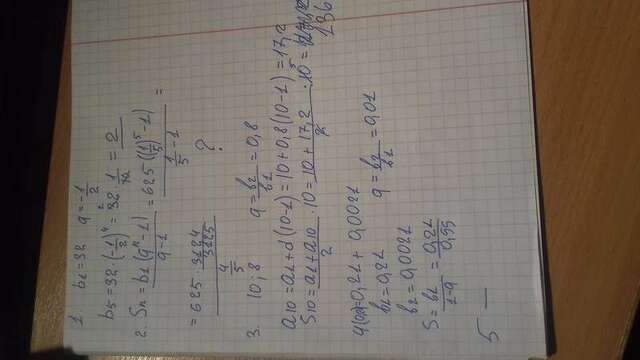 1. b1=32 q=-1/2
b5=32·(-1/2)^4=32·1/16=2
2. Sn=b1(q^n-1)/(q-1)=625((1/5)^5-1)/(1/5-1)=
=625·3124/3125/(4/5) ?
3. 10; 8 q=b2/b1=0,8
a10=a1+d(10-1)=10+0,8(10-1)=17,2
S10=(a1+a10)/2·10=(10+17,2)/2·10=
136
=0,21+0,0021
b1=0,21 q=b2/b1=0,01
b2=0,0021
S=b1/(1-q)=0,21/0,99
5 —